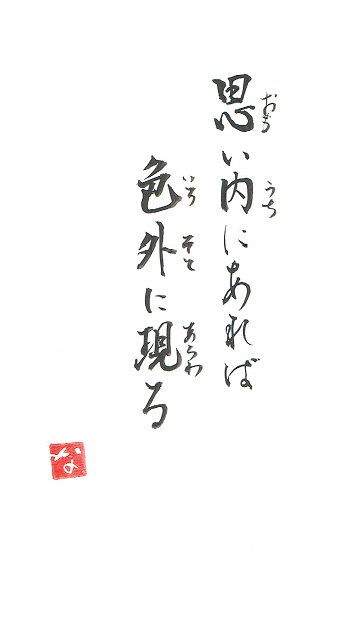 思い内にあれば
おもい
うち
色外に現る
いろ
そと
あらわ
な